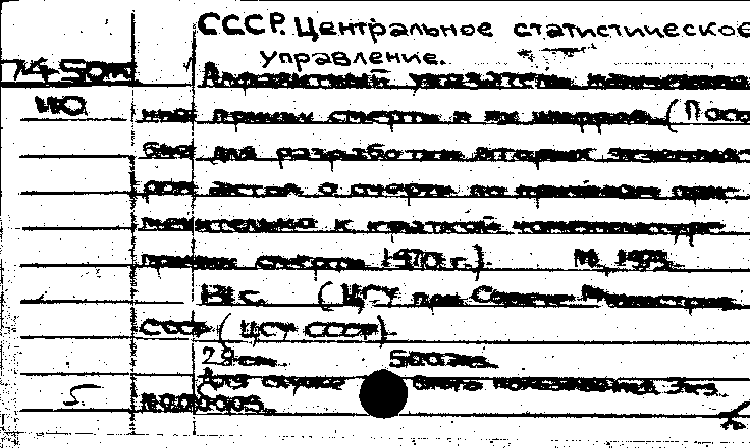 СССР. Центральное статистическое
управление.
74-50
Алфавитный указатель наименова-
ний причин смерти и их шифров. (Посо
бие для разработки вторых экземпля-
ров актов о смерти по причинам при-
менительно к краткой номенклатуре
причин смерти 1970 г.) М. 197
с. (ЦСУ при Совете Министров
СССР (ЦСУ СССР)
29 см. 500 экз.
Для служебного пользования. Экз.
5.